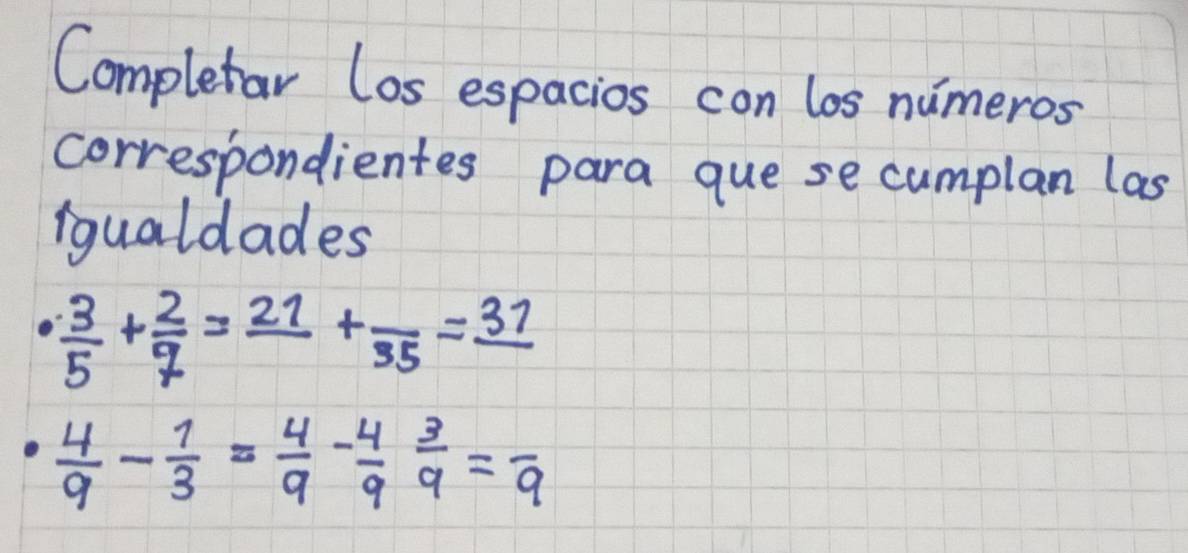 Completar los espacios con los números
correspondientes para que se cumplan las
igualdades
• 3/5 + 2/7 = 21/ + /35 = 31/
• 4/9 - 1/3 = 4/9 - 4/9 3/9 = /9